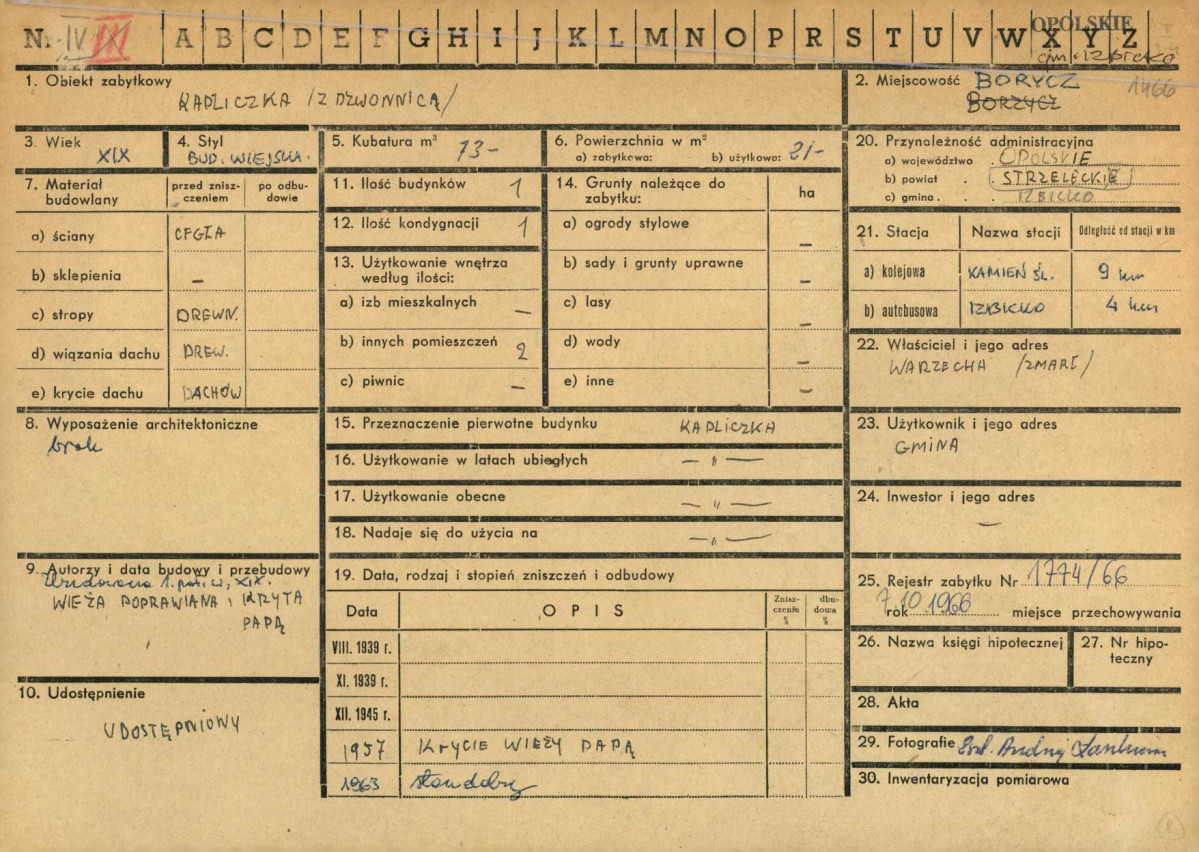 Nr IV III A B C D E F G H I J K L M N O P R S T U V W X Y Z
OPOLSKIE
gm. IZBICKO
1. Obiekt zabytkowy
KAPLICZKA /Z DZWONNICĄ/
2. Miejscowość BORYCZ
BORZYCZ
1466
3. Wiek XIX
4. Styl
BUD. WIEJSKA.
5. Kubatura m³ 73-
6. Powierzchnia w m²
a) zabytkowa: b) użytkowa: 21-
20. Przynależność administracyjna
a) województwo OPOLSKIE
b) powiat STRZELECKIE
c) gmina IZBICKO
7. Materiał budowlany
przed zniszczeniem
po odbudowie
a) ściany CEGŁA
b) sklepienia –
c) stropy DREWN.
d) wiązania dachu DREW.
e) krycie dachu DACHÓW
11. Ilość budynków 1
12. Ilość kondygnacji 1
13. Użytkowanie wnętrza
według ilości:
a) izb mieszkalnych –
b) innych pomieszczeń 2
c) piwnic –
14. Grunty należące do
zabytku:
ha
a) ogrody stylowe –
b) sady i grunty uprawne –
c) lasy –
d) wody –
e) inne –
21. Stacja Nazwa stacji Odległość od stacji w km
a) kolejowa KAMIEŃ ŚL. 9 km
b) autobusowa IZBICKO 4 km
22. Właściciel i jego adres
WARZECHA /ZMARŁ/
8. Wyposażenie architektoniczne
brak
15. Przeznaczenie pierwotne budynku KAPLICZKA
16. Użytkowanie w latach ubiegłych — „ —
17. Użytkowanie obecne — „ —
18. Nadaje się do użycia na — „ —
23. Użytkownik i jego adres
GMINA
24. Inwestor i jego adres
—
9. Autorzy i data budowy i przebudowy
1. poł. w. XIX.
WIEŻA POPRAWIANA i KRYTA
PAPĄ
10. Udostępnienie
UDOSTĘPNIONY
19. Data, rodzaj i stopień zniszczeń i odbudowy
Data OPIS Zniszczenie % dbudowa %
VIII. 1939 r.
XI. 1939 r.
XII. 1945 r.
1957 KRYCIE WIEŻY PAPĄ
1963 stan dobry
25. Rejestr zabytku Nr 1774/66
7.10.
rok 1966 miejsce przechowywania
26. Nazwa księgi hipotecznej
27. Nr hipoteczny
28. Akta
29. Fotografie
30. Inwentaryzacja pomiarowa